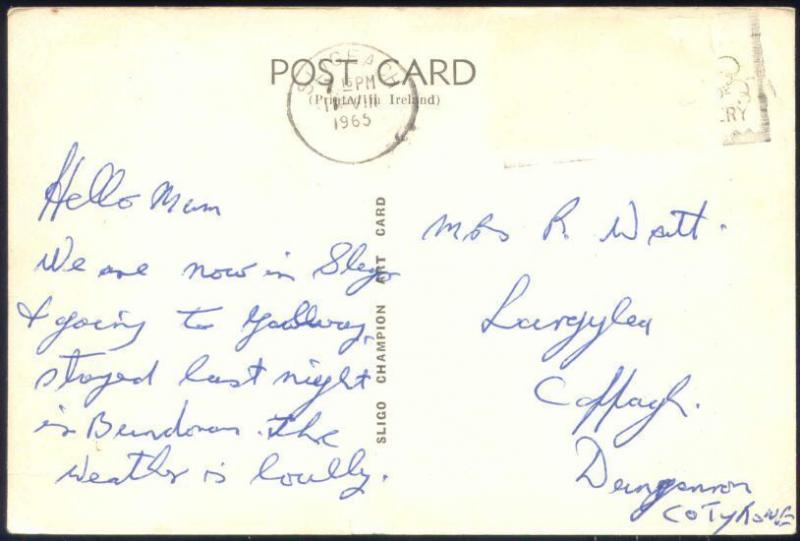 POST CARD
(Printed in Ireland)
SLIGEACH
PM
VIII
1965
RY
SLIGO CHAMPION ART CARD
Hello Mum
We are now in Sligo
& going to Galway,
stayed last night
in Bundoran. The
weather is loully.
Mrs R. Watt.
Largylea
Cappagh.
Dungannon
Co Tyrone